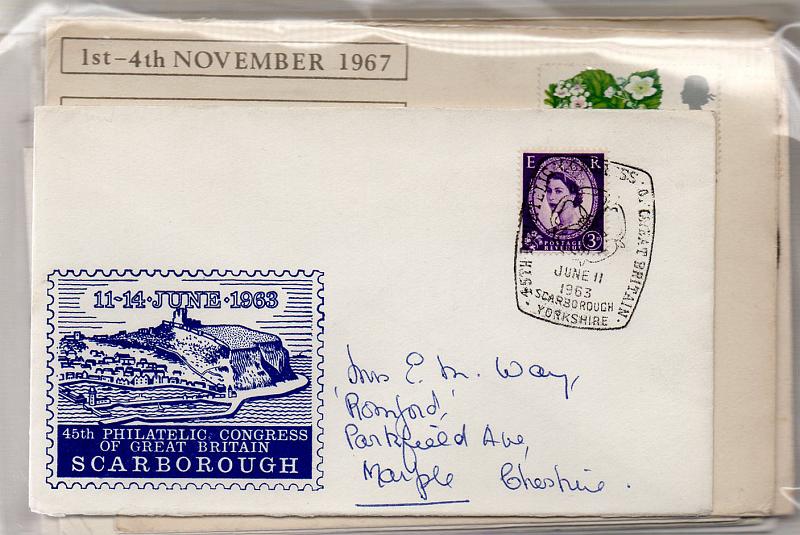 1st-4th NOVEMBER 1967
E R
POSTAGE
REVENUE
3D
45TH PHILATELIC CONGRESS OF GREAT BRITAIN
JUNE 11
1963
SCARBOROUGH
YORKSHIRE
11-14·JUNE·1963
45th PHILATELIC CONGRESS
OF GREAT BRITAIN
SCARBOROUGH
Mrs E. M. Way,
'Romford,'
Parkfield Ave,
Marple Cheshire.